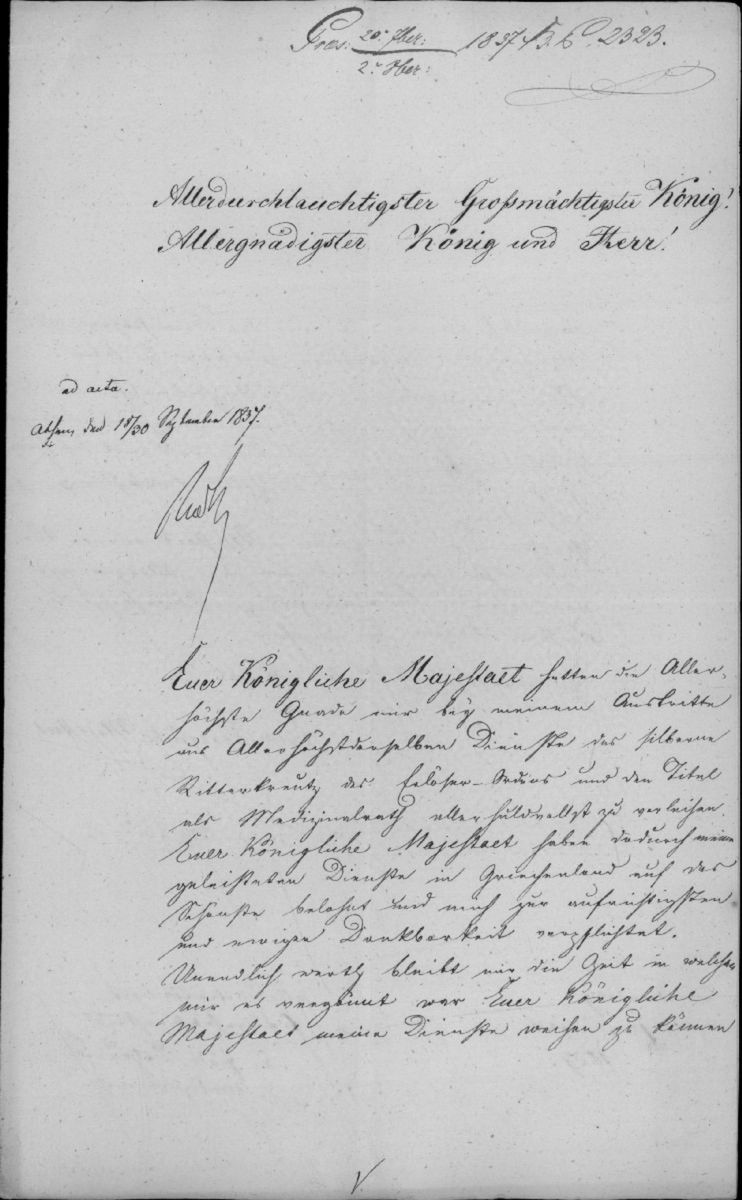 Praes: 20. 7ber: 1837 No. 2323.
2. 8ber:
Allerdurchlauchtigster Großmächtigster König!
Allergnädigster König und Herr!
ad acta.
Athen, den 18/30 September 1837.
Euer Königliche Majestaet hatten die Aller-
höchste Gnade mir bey meinem Austritte
aus Allerhöchstderselben Dienste das silberne
Ritterkreutz des Erlöser-Ordens und den Titel
als Medizinalrath allerhuldvollst zu verleihen.
Euer Königliche Majestaet haben dadurch meine
geleisteten Dienste in Griechenland auf das
Schönste belohnt und mich zur aufrichtigsten
und ewigen Dankbarkeit verpflichtet.
Unendlich werth bleibt mir die Zeit in welcher
mir es vergönnt war Euer Königliche
Majestaet meine Dienste weihen zu können